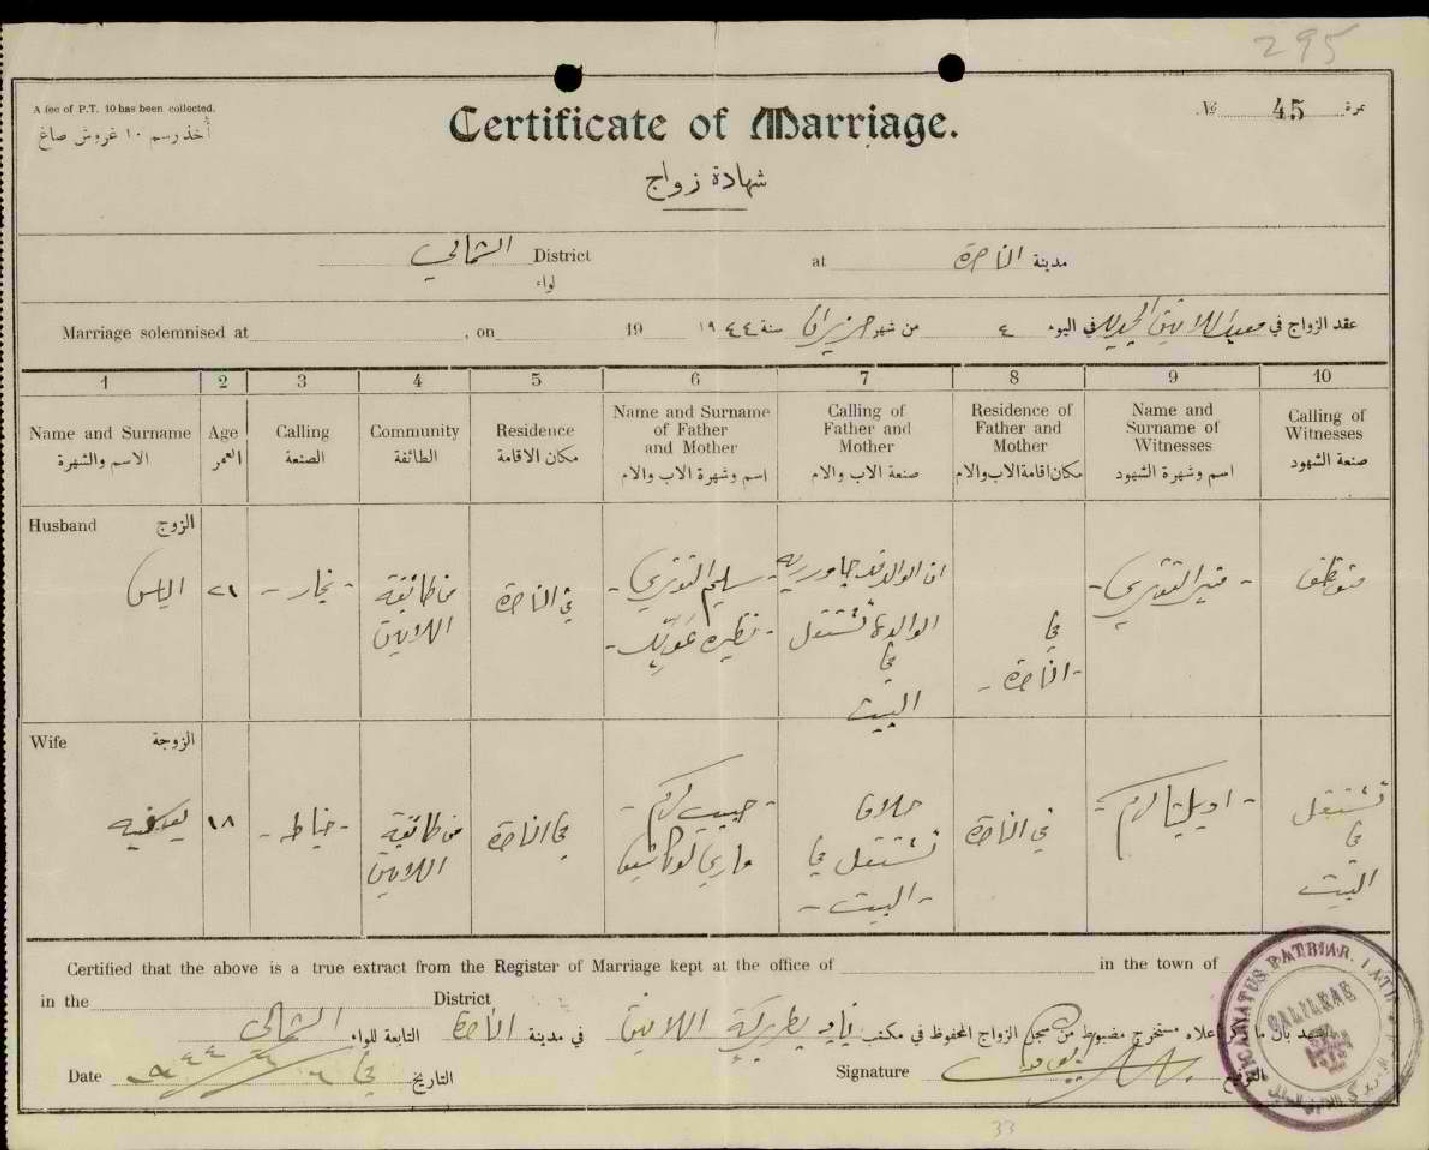 295
A fee of P.T. 10 has been collected.
أخذ رسم ١٠ غروش صاغ
Certificate of Marriage.
№ 45 نمرة
شهادة زواج
الشمالي District
لواء
at الناصرة مدينة
Marriage solemnised at , on 19
عقد الزواج في معبد اللاتين الجديد في اليوم ٤ من شهر حزيران سنة ١٩٤٤
1 2 3 4 5 6 7 8 9 10
Name and Surname
الاسم والشهرة
Age
العمر
Calling
الصنعة
Community
الطائفة
Residence
مكان الاقامة
Name and Surname
of Father
and Mother
اسم وشهرة الاب والام
Calling of
Father and
Mother
صنعة الاب والام
Residence of
Father and
Mother
مكان اقامة الاب والام
Name and
Surname of
Witnesses
اسم وشهرة الشهود
Calling of
Witnesses
صنعة الشهود
Husband الزوج
الياس
٢١
- نجار -
من طائفة
اللاتين
في الناصرة
سليم
نظيره
ان الوالد قد جاور ربه
الوالدة تشتغل
في
البيت
في
- الناصرة -
منير
موظف
Wife الزوجة
١٨
- خياطه -
من طائفة
اللاتين
في الناصرة
- حبيب كرم -
ماري
حلاق
تشتغل في
- البيت -
في الناصرة
كرم -
تشتغل
في
البيت
Certified that the above is a true extract from the Register of Marriage kept at the office of in the town of
in the District
اشهد بان ما ذكر اعلاه مستخرج مضبوط من سجل الزواج المحفوظ في مكتب بطريركية اللاتين في مدينة الناصرة التابعة للواء الشمالي
Date التاريخ في
Signature التوقيع
VICARIATUS PATRIAR. LATIN.
GALILEAE
33